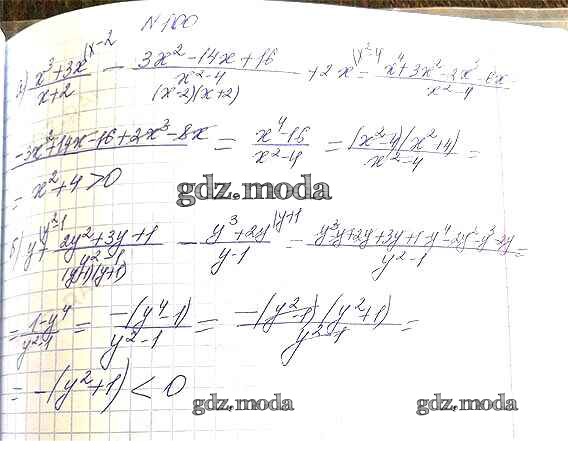 № 100
а) (x³+3x)/(x+2) (x-2 - (3x²-14x+16)/(x²-4) + 2x (x²-4 = (x⁴+3x²-2x³-6x-
(x-2)(x+2)
-3x²+14x-16+2x³-8x)/(x²-4) = (x⁴-16)/(x²-4) = ((x²-4)(x²+4))/(x²-4) =
= x²+4>0
gdz.moda
б) y (y²-1 + (2y²+3y+1)/(y²-1) - (y³+2y)/(y-1) (y+1 =
= (1-y⁴)/(y²-1) = (-(y⁴-1))/(y²-1) = (-(y²-1)(y²+1))/(y²-1) =
= -(y²+1) < 0
gdz.moda
gdz.moda